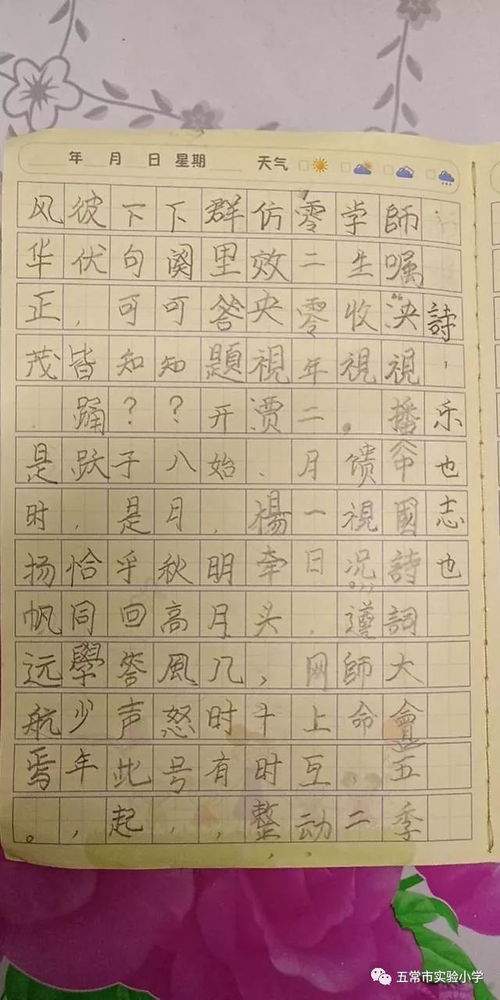 詩，乐也志也
師嘱泱視播國詩詞大會五季
学生收視。馈視况遵師命。二
零二零年二月一日，网上互动
仿效央視賈、楊牵头，十时整
群里答題开始，明月几时有，
下阕可知？八月秋高風怒号，
下句可知？子是乎回答声此起
彼伏，皆踊跃，恰同學少年，
风华正茂.是时扬帆远航焉。
年 月 日 星期 天气
五常市实验小学